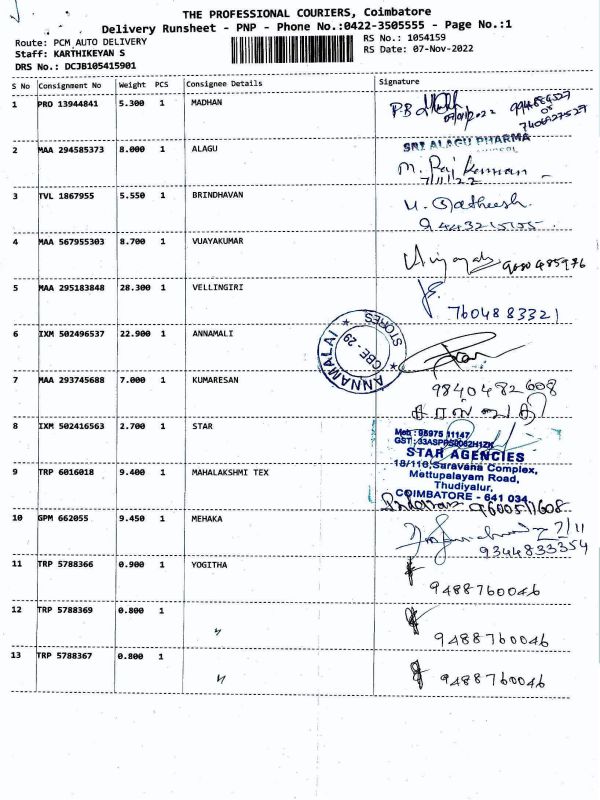 THE PROFESSIONAL COURIERS, Coimbatore
Delivery Runsheet - PNP - Phone No.:0422-3505555 - Page No.:1
Route: PCM AUTO DELIVERY
Staff: KARTHIKEYAN S
DRS No.: DCJB105415901
RS No.: 1054159
RS Date: 07-Nov-2022
S No Consignment No Weight PCS Consignee Details Signature
1 PRO 13944841 5.300 1 MADHAN
2 MAA 294585373 8.000 1 ALAGU
SRI ALAGU PHARMA
M. Raj Kannan
7/11/22
3 TVL 1867955 5.550 1 BRINDHAVAN
9443215155
4 MAA 567955303 8.700 1 VIJAYAKUMAR
5 MAA 295183848 28.300 1 VELLINGIRI
7604883321
6 IXM 502496537 22.900 1 ANNAMALI
ANNAMALAI STORES
CBE - 29
7 MAA 293745688 7.000 1 KUMARESAN
9840482608
8 IXM 502416563 2.700 1 STAR
Mob : 98975 11147
STAR AGENCIES
18/116, Saravana Complex,
Mettupalayam Road,
Thudiyalur,
COIMBATORE - 641 034
9 TRP 6016018 9.400 1 MAHALAKSHMI TEX
9600517608
10 GPM 662055 9.450 1 MEHAKA
7/11
9344833354
11 TRP 5788366 0.900 1 YOGITHA
9488760046
12 TRP 5788369 0.800 1 〃
9488760046
13 TRP 5788367 0.800 1 〃
9488760046